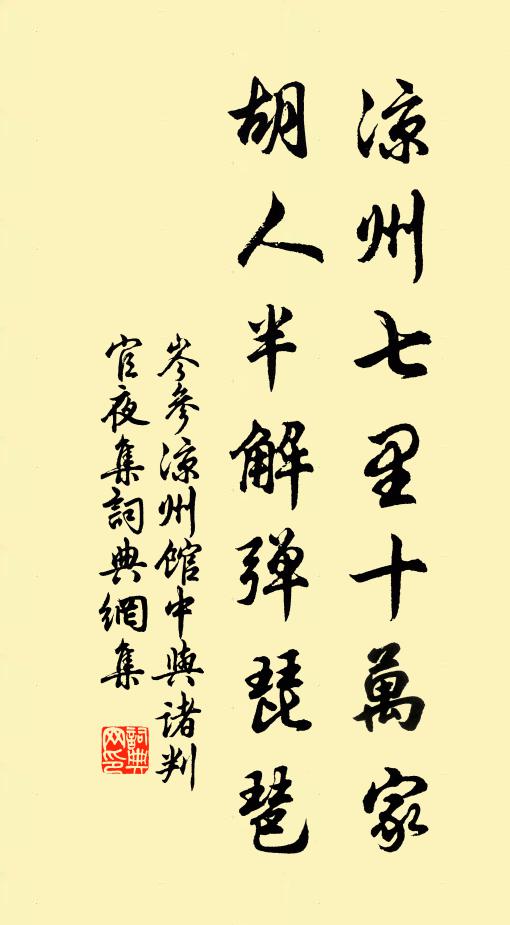 凉州七里十萬家
胡人半解弹琵琶
岑參凉州館中與諸判
官夜集詞典網集
詞典
网印